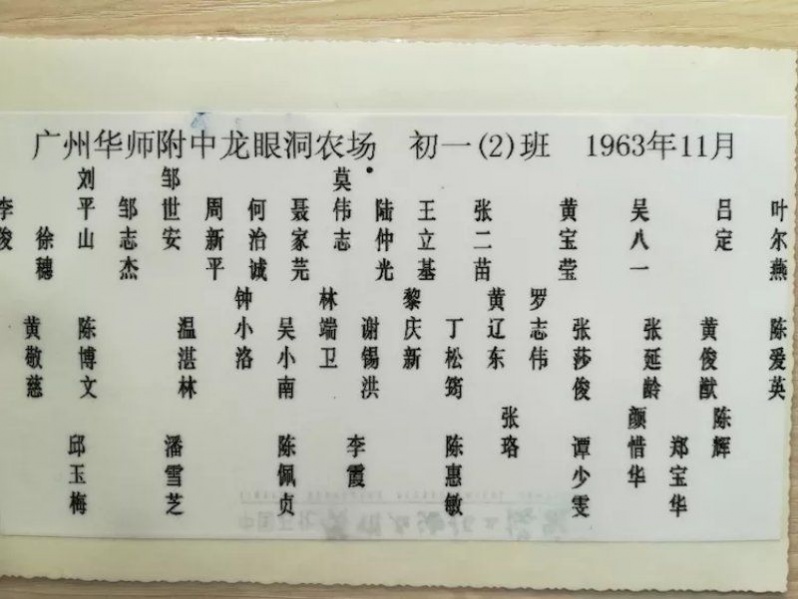 广州华师附中龙眼洞农场 初一(2)班 1963年11月
李俊 徐穗 刘平山 邹志杰 邹世安 周新平 何治诚 聂家芫 莫伟志 陆仲光 王立基 张二苗 黄宝莹 吴八一 吕定 叶尔燕
黄敬慈 陈博文 温湛林 钟小洛 吴小南 林端卫 谢锡洪 黎庆新 丁松筠 黄辽东 罗志伟 张莎俊 张延龄 黄俊猷 陈爱英
邱玉梅 潘雪芝 陈佩贞 李霞 陈惠敏 张珞 谭少雯 颜惜华 郑宝华 陈辉